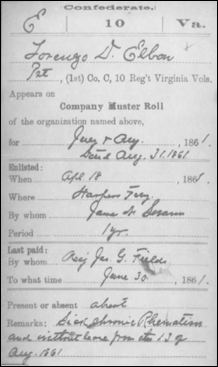 Confederate.
E 10 Va.
Lorenzo D. Elbon
Pvt, (1st) Co. C, 10 Reg't Virginia Vols.
Appears on
Company Muster Roll
of the organization named above,
for July & Aug, 1861.
Dated Aug. 31, 1861
Enlisted:
When Apl 18, 1861.
Where Harpers Fery
By whom James
Period 1 yr.
Last paid:
By whom Maj Jas. G. Fields
To what time June 30, 1861.
Present or absent absent
Remarks: Sick chronic Rheumatism
and without leave from the 13 of
Aug. 1861